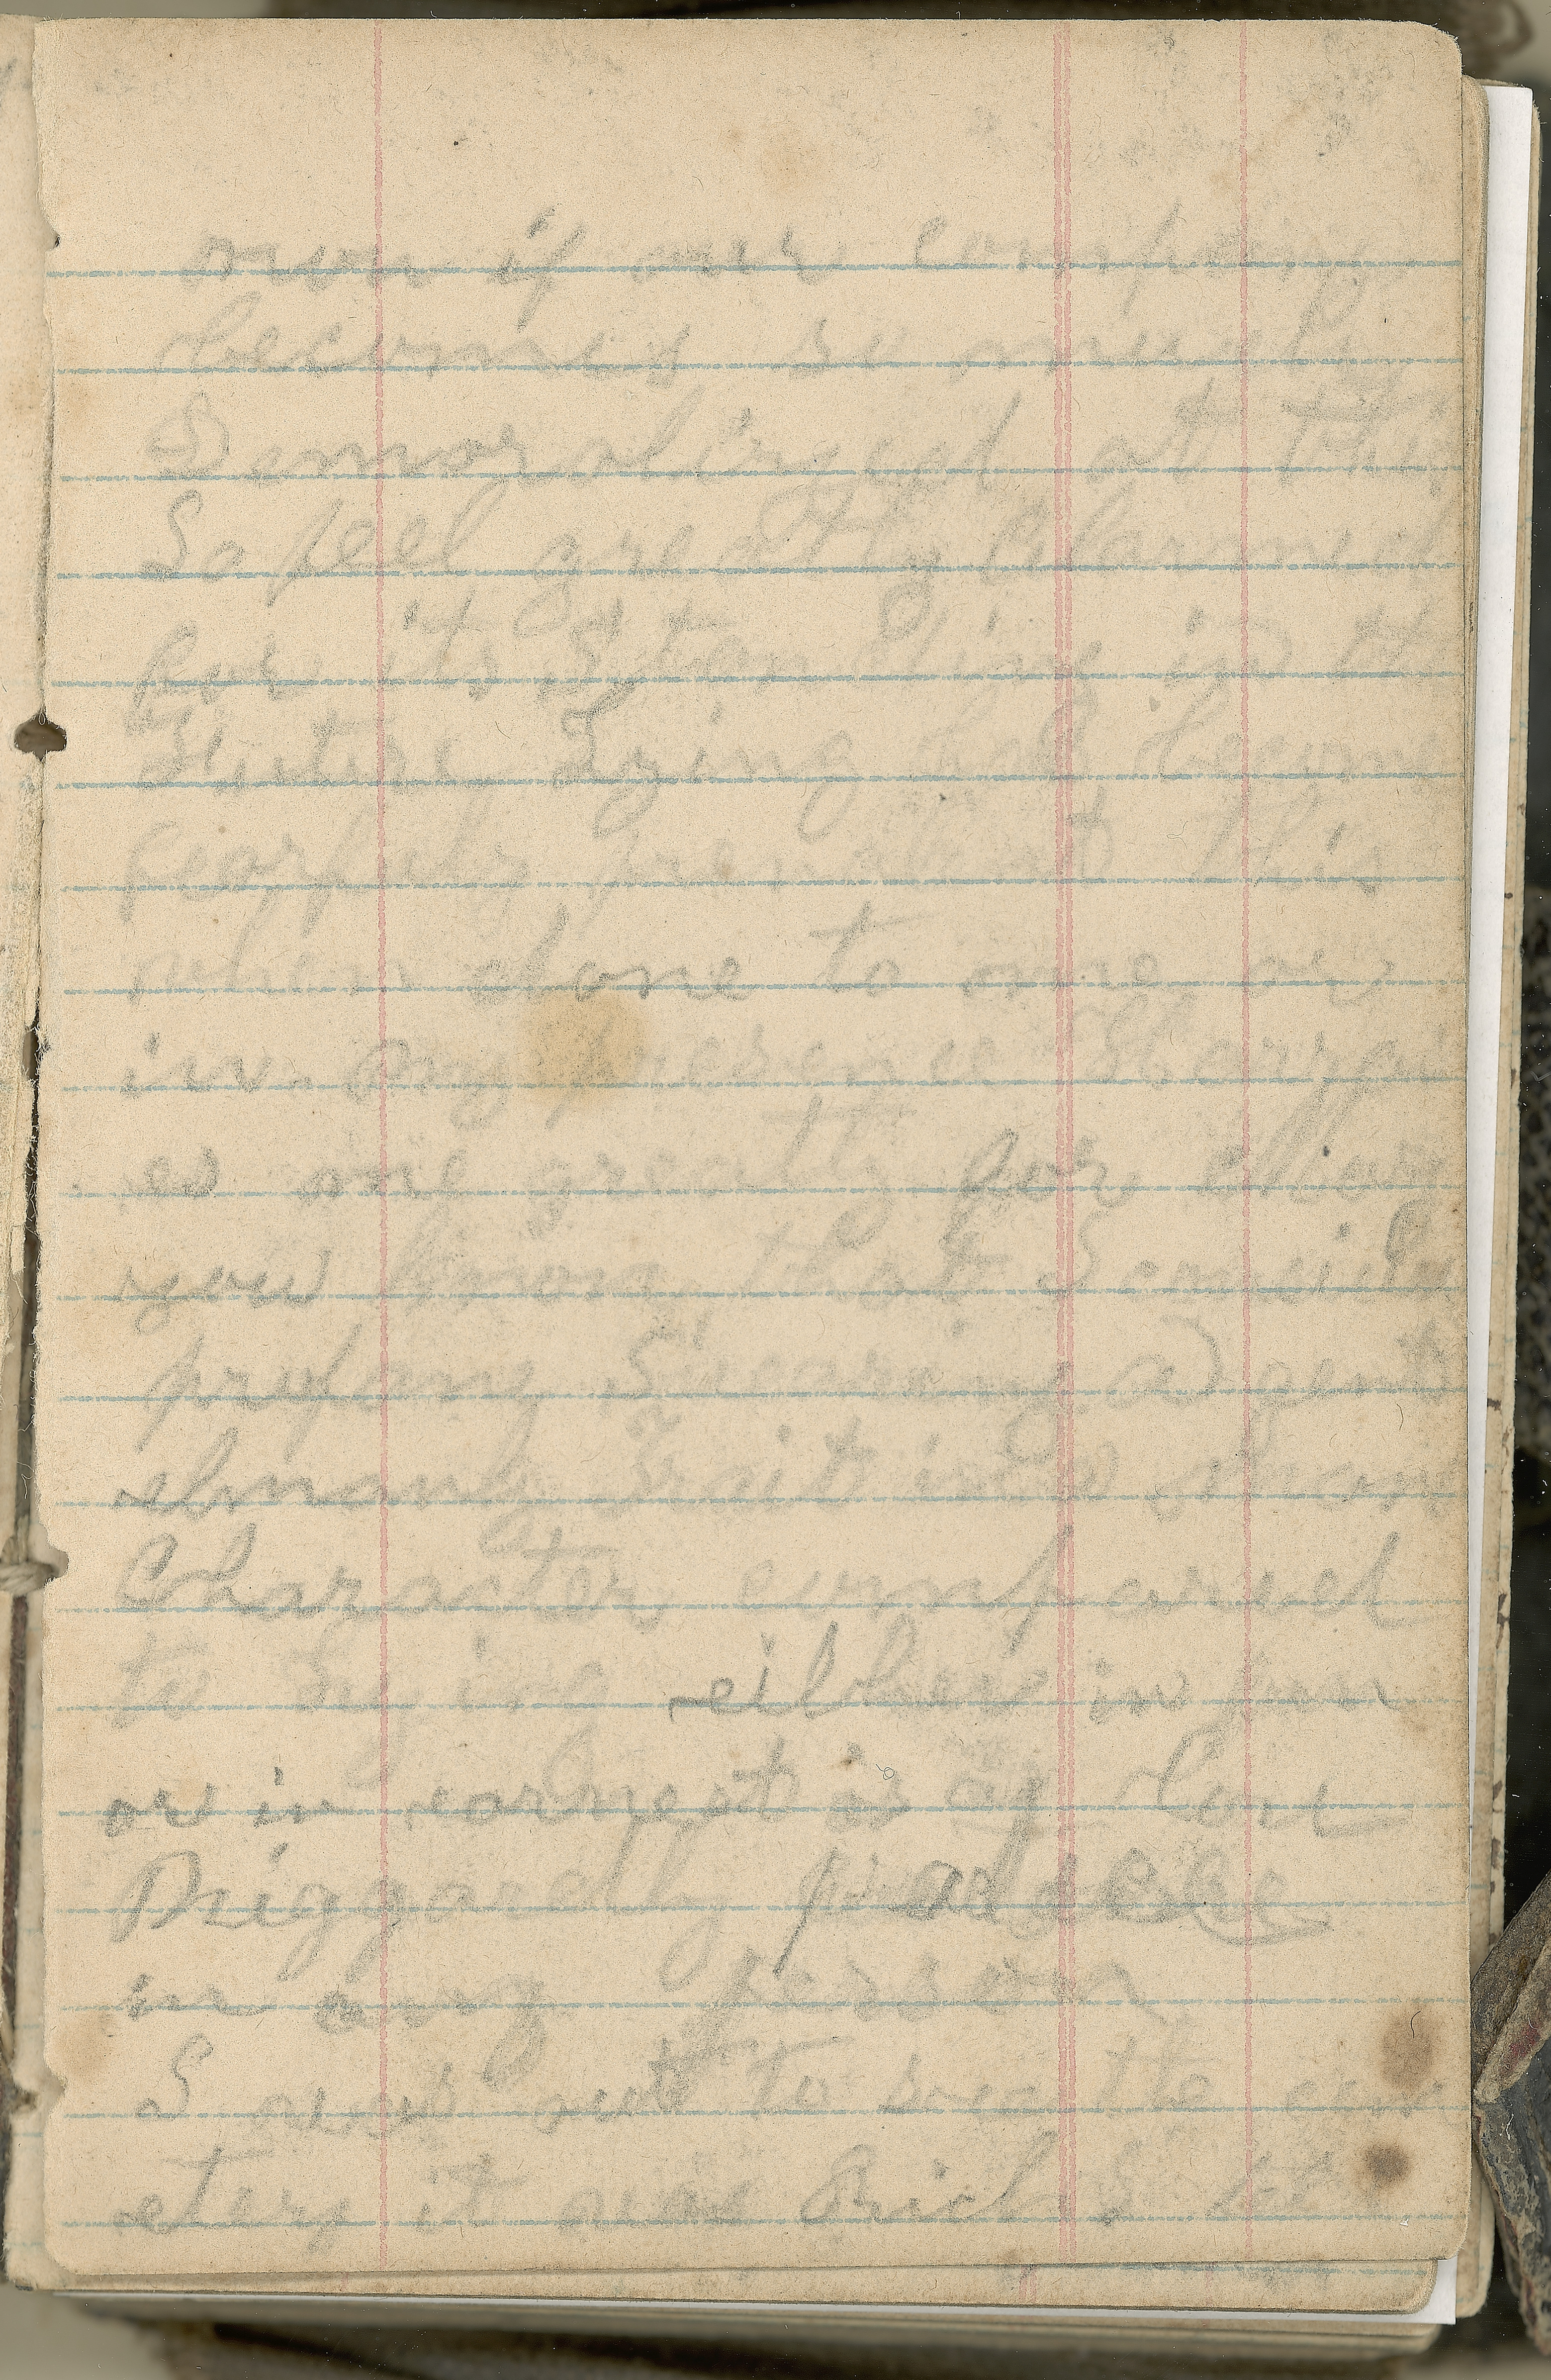 our company
becomes so much
Demoralinged at this
So feel greatly Alarmed
for its Standing in the
Future Lying has become
fearfuly prevalent this
when done to me or
in my presence
es me greatly for
you know that I
profany Swearing a
trait in a mans
Character compared
to Lying either in fun
or in earnest is a low
Niggaredly practice
in any person
I was out to see the cem
etery it was Brick